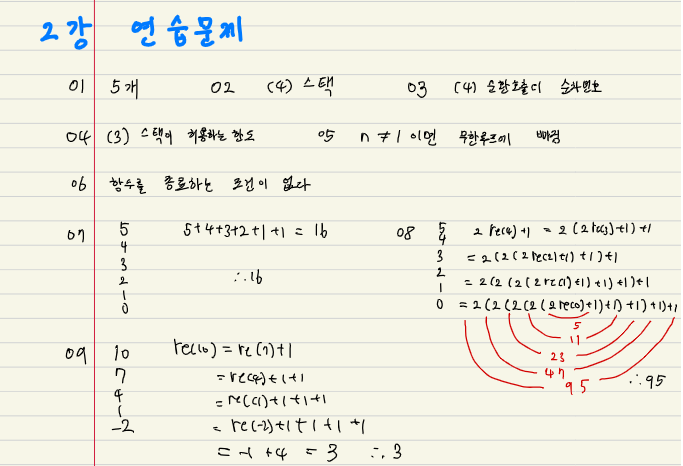 2강 연습문제
01 5개 02 (4) 스택 03 (4) 순환호출이
04 (3) 스택이 허용하는 한도 05 n ≠ 1 이면 무한루프에 빠짐
06 함수를 종료하는 조건이 없다
07 5 5+4+3+2+1+1 = 16 08 5 2 re(4)+1 = 2(2re(3)+1)+1
4 4
3 3 = 2(2(2re(2)+1)+1)+1
2 ∴16 2
1 1 = 2(2(2(2re(1)+1)+1)+1)+1
0 0 = 2(2(2(2(2re(0)+1)+1)+1)+1)+1
5
11
23
47
95 ∴95
09 10 re(10) = re(7)+1
7 = re(4)+1+1
4 = re(1)+1+1+1
1
-2 = re(-2)+1+1+1+1
= -1+4 = 3 ∴3